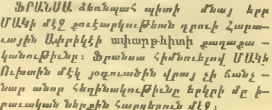 ՖՐԱՆՍԱ ձեռնպահ պիտի մնայ երբ
ՄԱԿի մէջ քուէարկութեան դրուի Հարա-
ւային Ափրիկէի ափարթհիտի քաղաքա-
կանութիւնը։ Ֆրանսա հիմնուելով ՄԱԿի
Ուխտին մէկ յօդուածին վրայ չի ճանչ-
նար անոր հեղինակութիւնը երկրի մը ի-
րաւական ներքին հարցերուն մէջ։